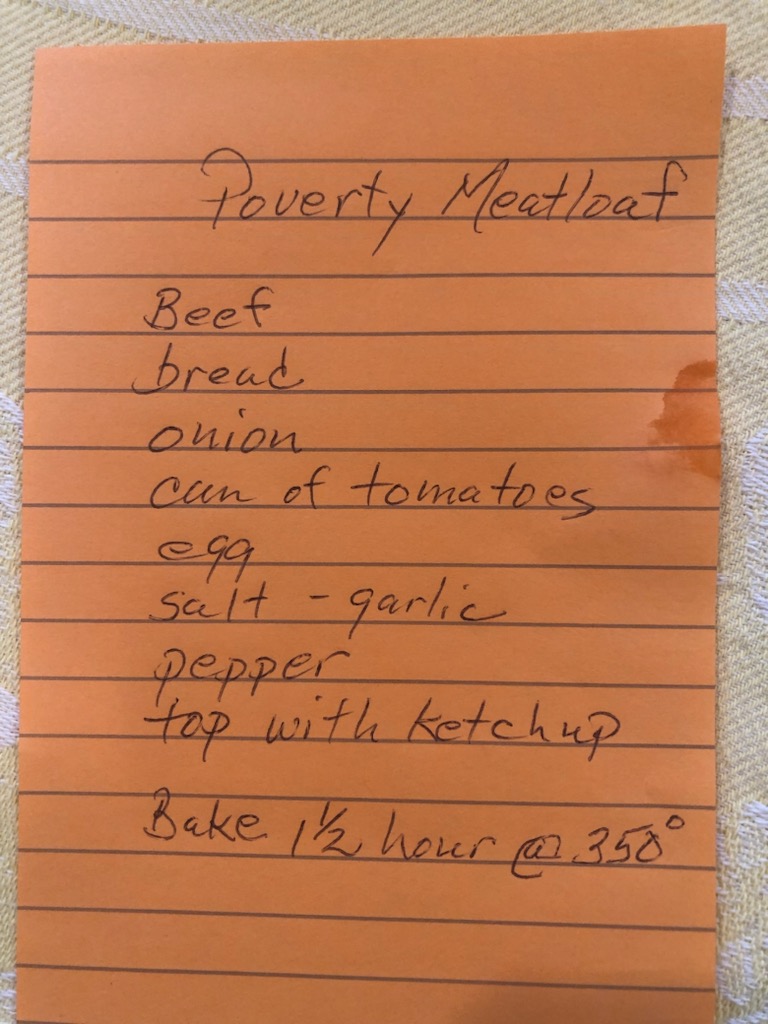 Poverty Meatloaf
Beef
bread
onion
can of tomatoes
egg
salt - garlic
pepper
top with ketchup
Bake 1½ hour @ 350°